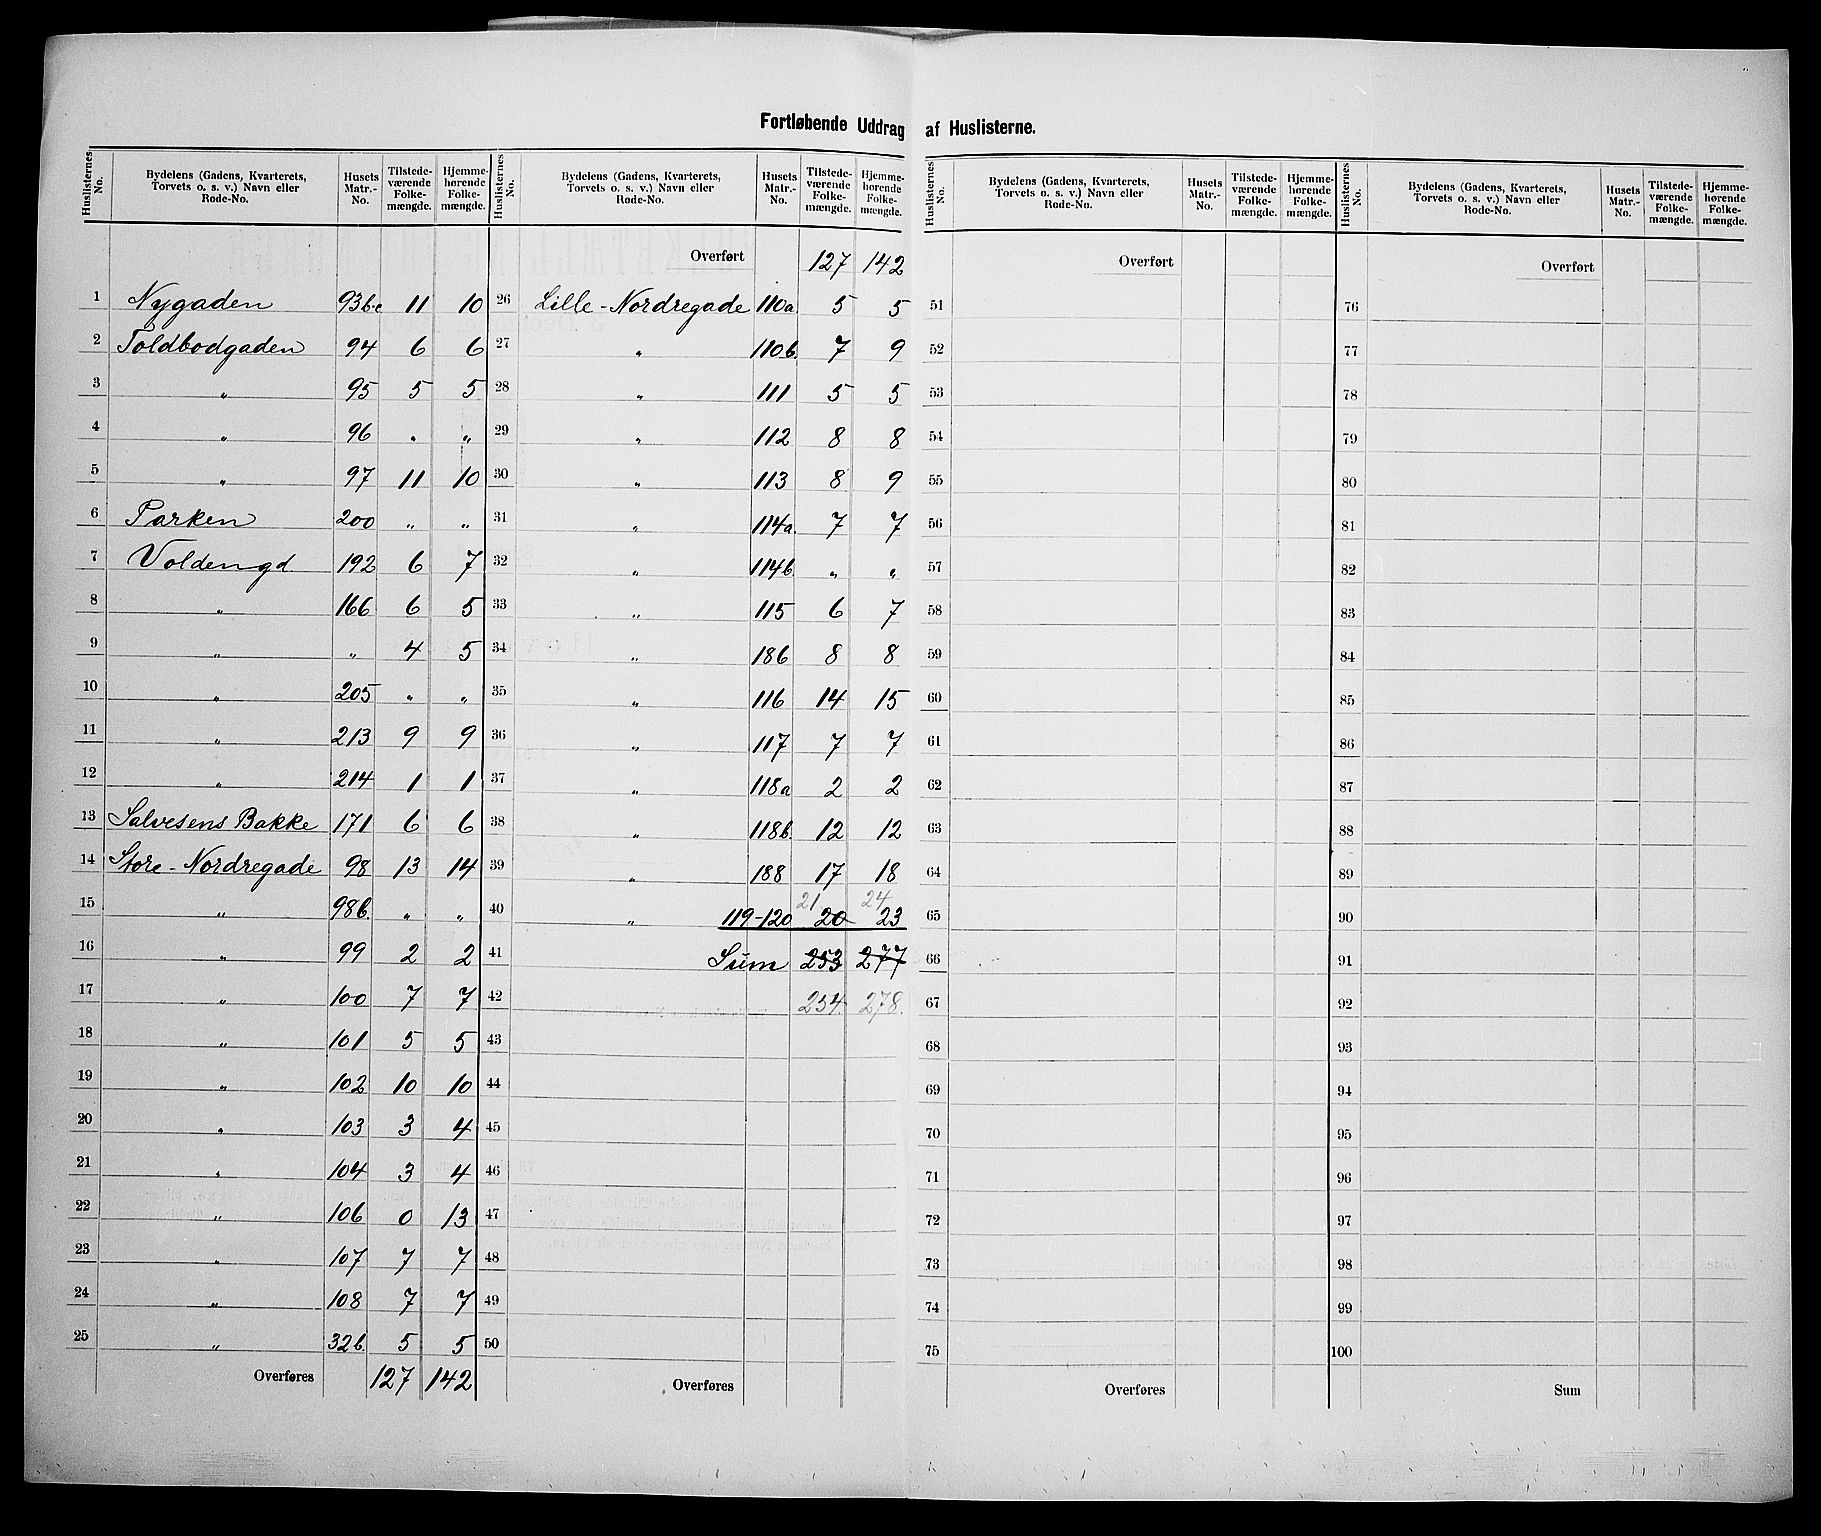 Fortløbende Uddrag af Huslisterne.
Huslisternes No. | Bydelens (Gadens, Kvarterets, Torvets o. s. v.) Navn eller Rode-No. | Husets Matr.-No. | Tilstedeværende Folkemængde. | Hjemmehørende Folkemængde.
1 Nygaden 93b-c 11 10
2 Toldbodgaden 94 6 6
3 „ 95 5 5
4 „ 96 „ „
5 „ 97 11 10
6 Parken 200 „ „
7 Voldengd 192 6 7
8 „ 166 6 5
9 „ „ 4 5
10 „ 205 „ „
11 „ 213 9 9
12 „ 214 1 1
13 Salvesens Bakke 171 6 6
14 Store-Nordregade 98 13 14
15 „ 98b. „ „
16 „ 99 2 2
17 „ 100 7 7
18 „ 101 5 5
19 „ 102 10 10
20 „ 103 3 4
21 „ 104 3 4
22 „ 106 0 13
23 „ 107 7 7
24 „ 108 7 7
25 „ 32b. 5 5
Overføres 127 142
Huslisternes No. | Bydelens (Gadens, Kvarterets, Torvets o. s. v.) Navn eller Rode-No. | Husets Matr.-No. | Tilstedeværende Folkemængde. | Hjemmehørende Folkemængde.
Overført 127 142
26 Lille-Nordregade 110a. 5 5
27 „ 110b. 7 9
28 „ 111 5 5
29 „ 112 8 8
30 „ 113 8 9
31 „ 114a. 7 7
32 „ 114b. „ „
33 „ 115 6 7
34 „ 186 8 8
35 „ 116 14 15
36 „ 117 7 7
37 „ 118a 2 2
38 „ 118b. 12 12
39 „ 188 17 18
21 24
40 „ 119-120 20 23
41 Sum 253 277
42 254. 278.
43
44
45
46
47
48
49
50
Overføres
Huslisternes No. | Bydelens (Gadens, Kvarterets, Torvets o. s. v.) Navn eller Rode-No. | Husets Matr.-No. | Tilstedeværende Folkemængde. | Hjemmehørende Folkemængde.
Overført
51
52
53
54
55
56
57
58
59
60
61
62
63
64
65
66
67
68
69
70
71
72
73
74
75
Overføres
Huslisternes No. | Bydelens (Gadens, Kvarterets, Torvets o. s. v.) Navn eller Rode-No. | Husets Matr.-No. | Tilstedeværende Folkemængde. | Hjemmehørende Folkemængde.
Overført
76
77
78
79
80
81
82
83
84
85
86
87
88
89
90
91
92
93
94
95
96
97
98
99
100
Sum